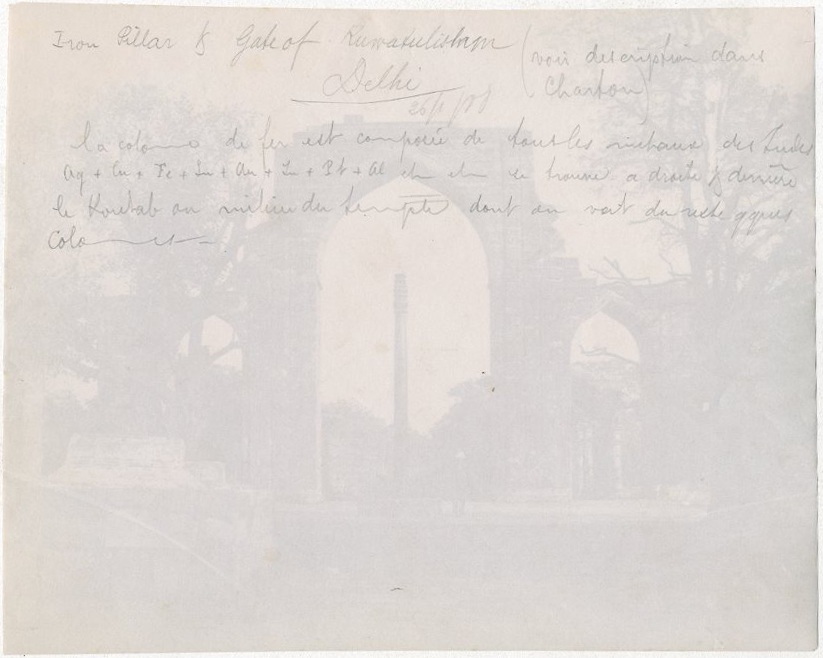 Iron Pillar & Gate of Kuwatulislam (voir description dans
Delhi Charton)
26/1/88
la colonne de fer est composée de tous les métaux des Indes
Ag + Cu + Fe + Sn + Au + Zn + Pt + Al etc etc se trouve a droite & derrière
le Koutab au milieu du temple dont on voit du reste qques
Colonnes